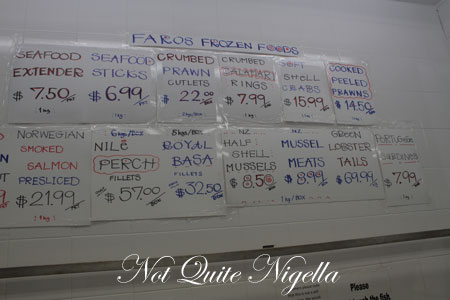 FAROS FROZEN FOODS
SEAFOOD
EXTENDER
$7.50
1kg
SEAFOOD
STICKS
$6.99
1kg
CRUMBED
PRAWN
CUTLETS
$22.00
2kg/BOX
CRUMBED
CALAMARI
RINGS
$7.99
1kg
SOFT
SHELL
CRABS
$15.99
1kg
COOKED
PEELED
PRAWNS
$14.50
NORWEGIAN
SMOKED
SALMON
PRESLICED
$21.99
1kg
6kgs/BOX
NILE
PERCH
FILLETS
$57.00
5kgs/BOX
ROYAL
BASA
FILLETS
$32.50
NZ
HALF
SHELL
MUSSELS
$8.50
NZ
MUSSEL
MEATS
$8.99
1kg/BOX
GREEN
LOBSTER
TAILS
$69.99
PORTUGUESE
SARDINES
$7.99
Not Quite Nigella
Please
the fish